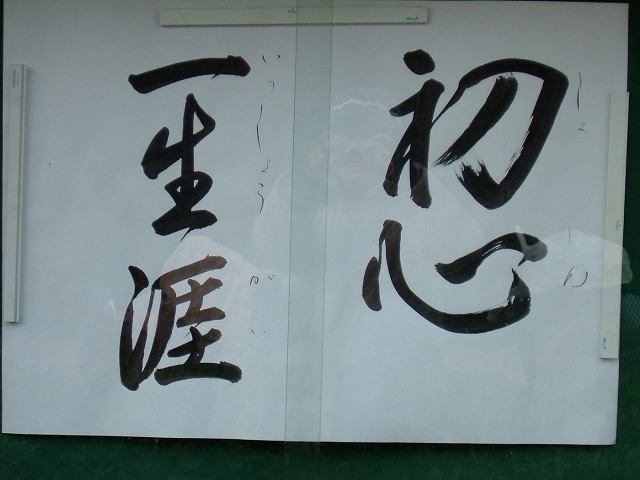 初心
しょしん
一生涯
いっしょうがい